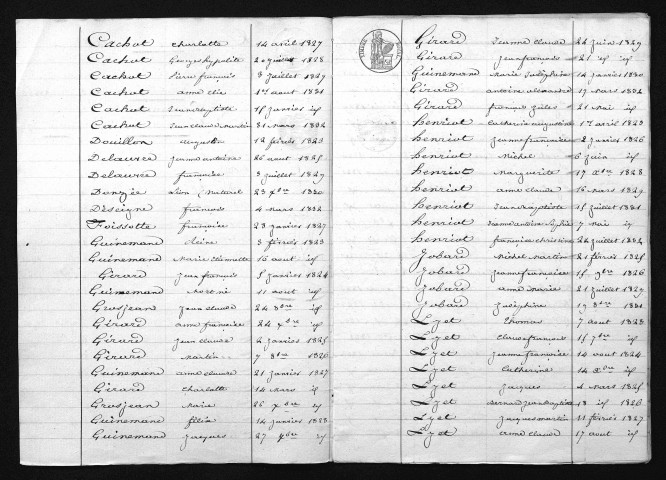 Cachot charlotte 14 avril 1827
Cachot Georges hypolite 20 1828
Cachot Pierre françois 8 juillet 1829
Cachot anne 1er aout 1831
Cachot Jean Baptiste 15 janvier id
Cachot Jean Claude Martin 31 Mars 1832
Douillon augustin 12 février 1823
Delaurre Jeanne antoine 26 aout 1825
Delaurre françoise 3 juillet 1829
Donzée Léon Naturel 23 xbre 1830
Déseigne françois 4 Mars 1832
Foissotte françoise 23 janvier 1827
Guinemand Reine 3 février 1823
Guinemand Marie 16 aout id
Girard Jean françois 5 janvier 1824
Guinemand Martine 11 aout id
Grosjean Jean Claude 24 8bre id
Girard anne françoise 24 xbre id
Girard Jean Claude 2 janvier 1825
Girard Martin 7 8bre 1826
Guinemand anne Claude 21 janvier 1827
Girard Charlotte 14 Mars id
Grosjean Marie 26 xbre id
Guinemand félix 14 janvier 1828
Guinemand jacques 27 xbre id
Girard Jeanne Claude 24 juin 1829
Girard Jean françois 21 id id
Guinemand Marie Joséphine 14 janvier 1830
Girard antoine alexandre 17 Mars 1832
Girard françois Jules 21 Mai id
henriot Catherine augustine 1er avril 1823
henriot Jeanne françoise 2 janvier 1826
henriot Michel 6 juin id
henriot Marguerite 17 xbre 1828
henriot anne Claude 16 Mars 1829
henriot Jean Baptiste 15 juillet 1831
henriot 7 Mai id
henriot françoise Christine 22 juillet 1832
Jobard Michel Martin 21 février 1825
Jobard Jeanne françoise 15 9bre 1826
Jobard anne Marie 21 juillet 1829
Jobard Joséphine 19 8bre 1831
Lyet Thomas 7 aout 1823
Lyet Claude françois 15 7bre id
Lyet Jeanne françoise 14 aout 1824
Lyet Catherine 14 xbre id
Lyet Jacques 4 Mars 1825
Lyet Bernard Jean Baptiste 18 id 1826
Lyet Jacques Martin 11 février 1827
Lyet anne Claude 17 aout id